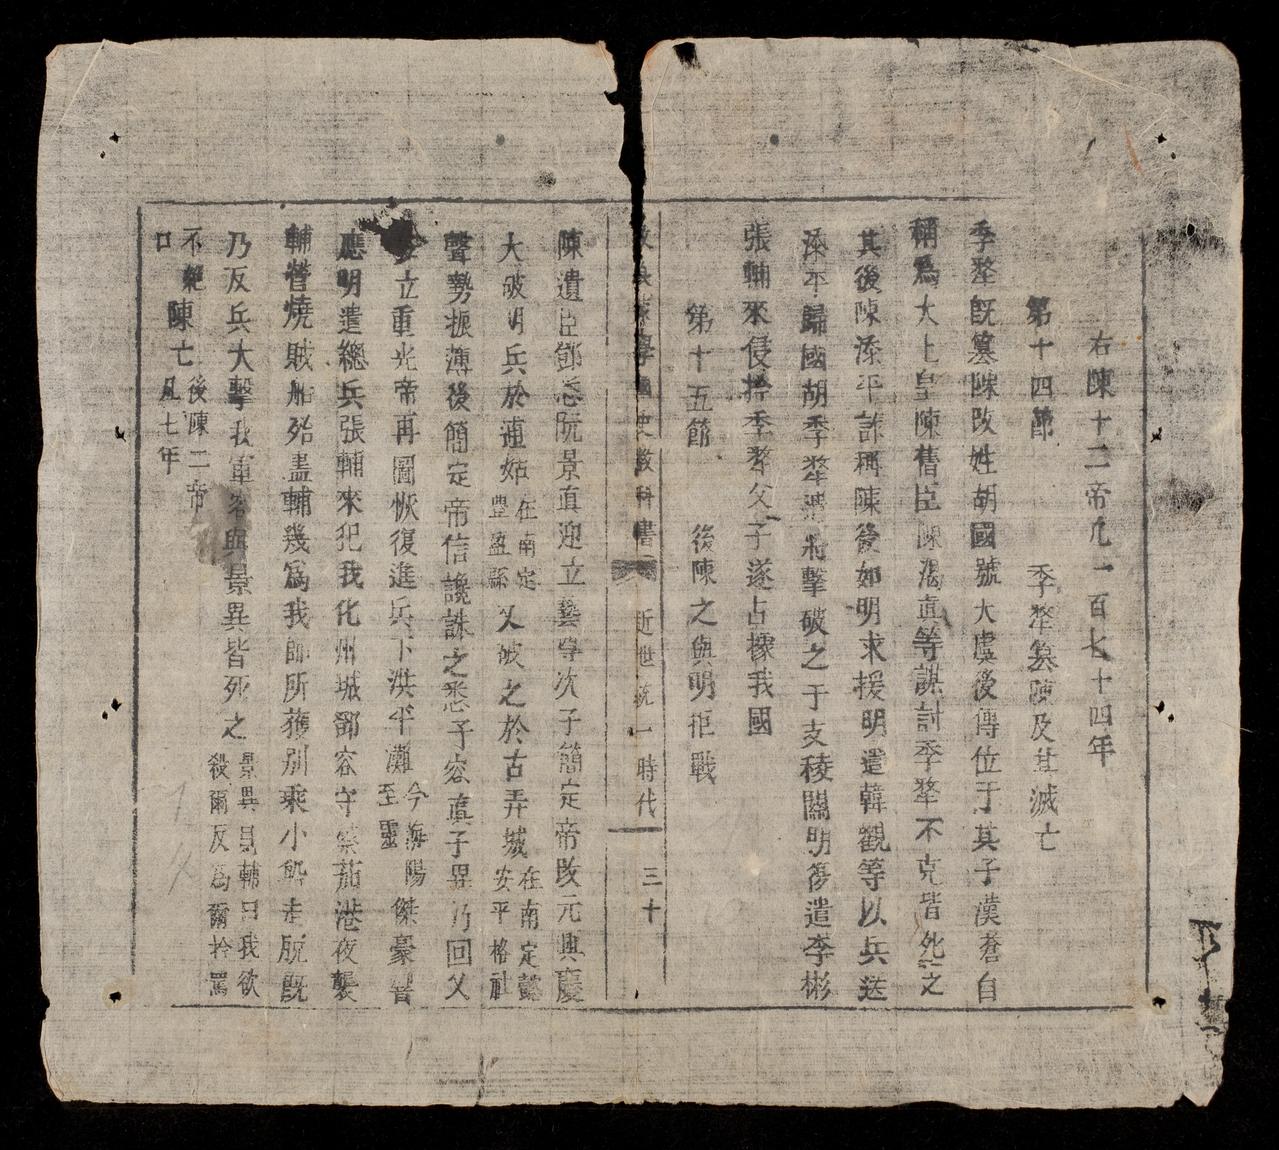 右陳十二帝凡一百七十四年
第十四節　季犛篡陳及其滅亡
季犛既篡陳改姓胡國號大虞後傳位于其子漢蒼自
稱爲大上皇陳舊臣陳渴真等謀討季犛不克皆死之
其後陳添平詐稱陳後如明求援明遣韓觀等以兵送
添平歸國胡季犛遣將擊破之于支稜關明復遣李彬
張輔來侵拾季犛父子遂占據我國
第十五節　後陳之與明拒戰
學國史教科書 近世統一時代 三十
陳遺臣鄧悉阮景真迎立藝尊次子簡定帝改元興慶
大破明兵於逋姑在南定豐盈縣又破之於古弄城在南定懿安平格社
聲勢振薄後簡定帝信讒誅之悉子容真子異乃回乂
立重光帝再圖恢復進兵下洪平灘今海陽至靈傑豪響
應明遣總兵張輔來犯我化州城鄧容守蔡茄港夜襲
輔營燒賊船殆盡輔幾爲我師所獲別乘小船走脫既
乃反兵大擊我軍容與景異皆死之景異罵輔曰我欲殺爾反爲爾拎罵
不絕口陳亡後陳二帝凡七年